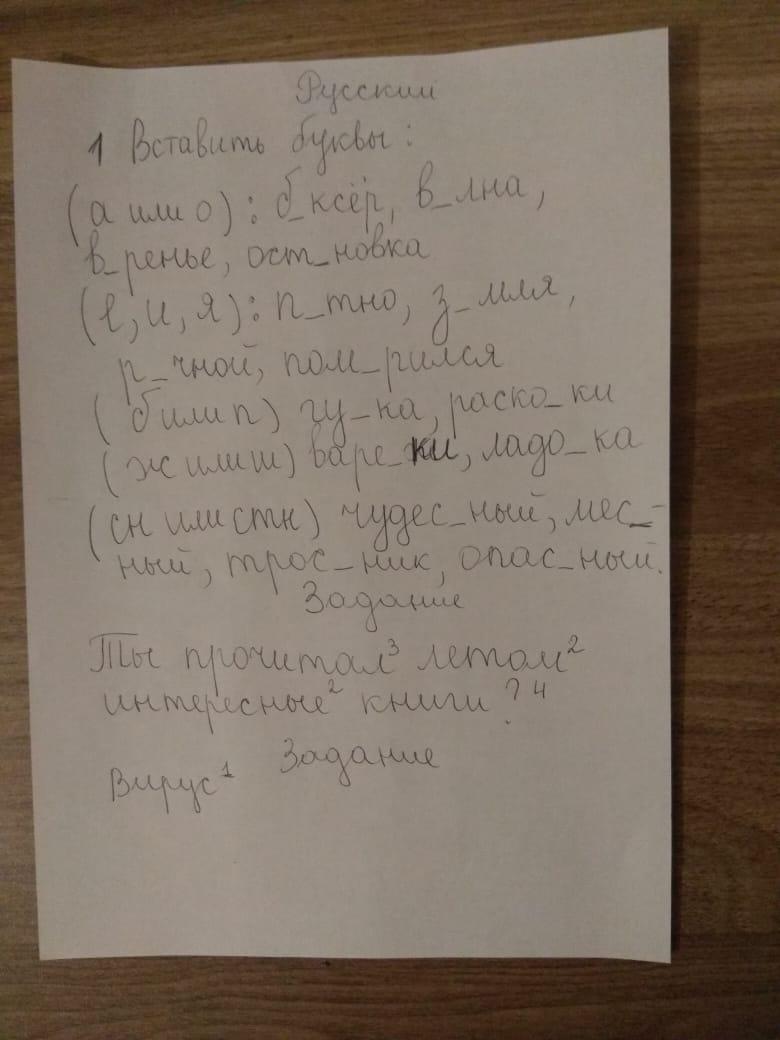 Русский
1 Вставить буквы:
(а или о): б_ксёр, в_лна,
в_ренье, ост_новка
(е, и, я): п_тно, з_мля,
р_чной, пом_рился
(б или п) гу_ка, раско_ки
(ж или ш) варе_ки, ладо_ка
(сн или стн) чудес_ный, мес_-
ный, трос_ник, опас_ный.
Задание
Ты прочитал³ летом²
интересные² книги?⁴
Задание
Вирус¹